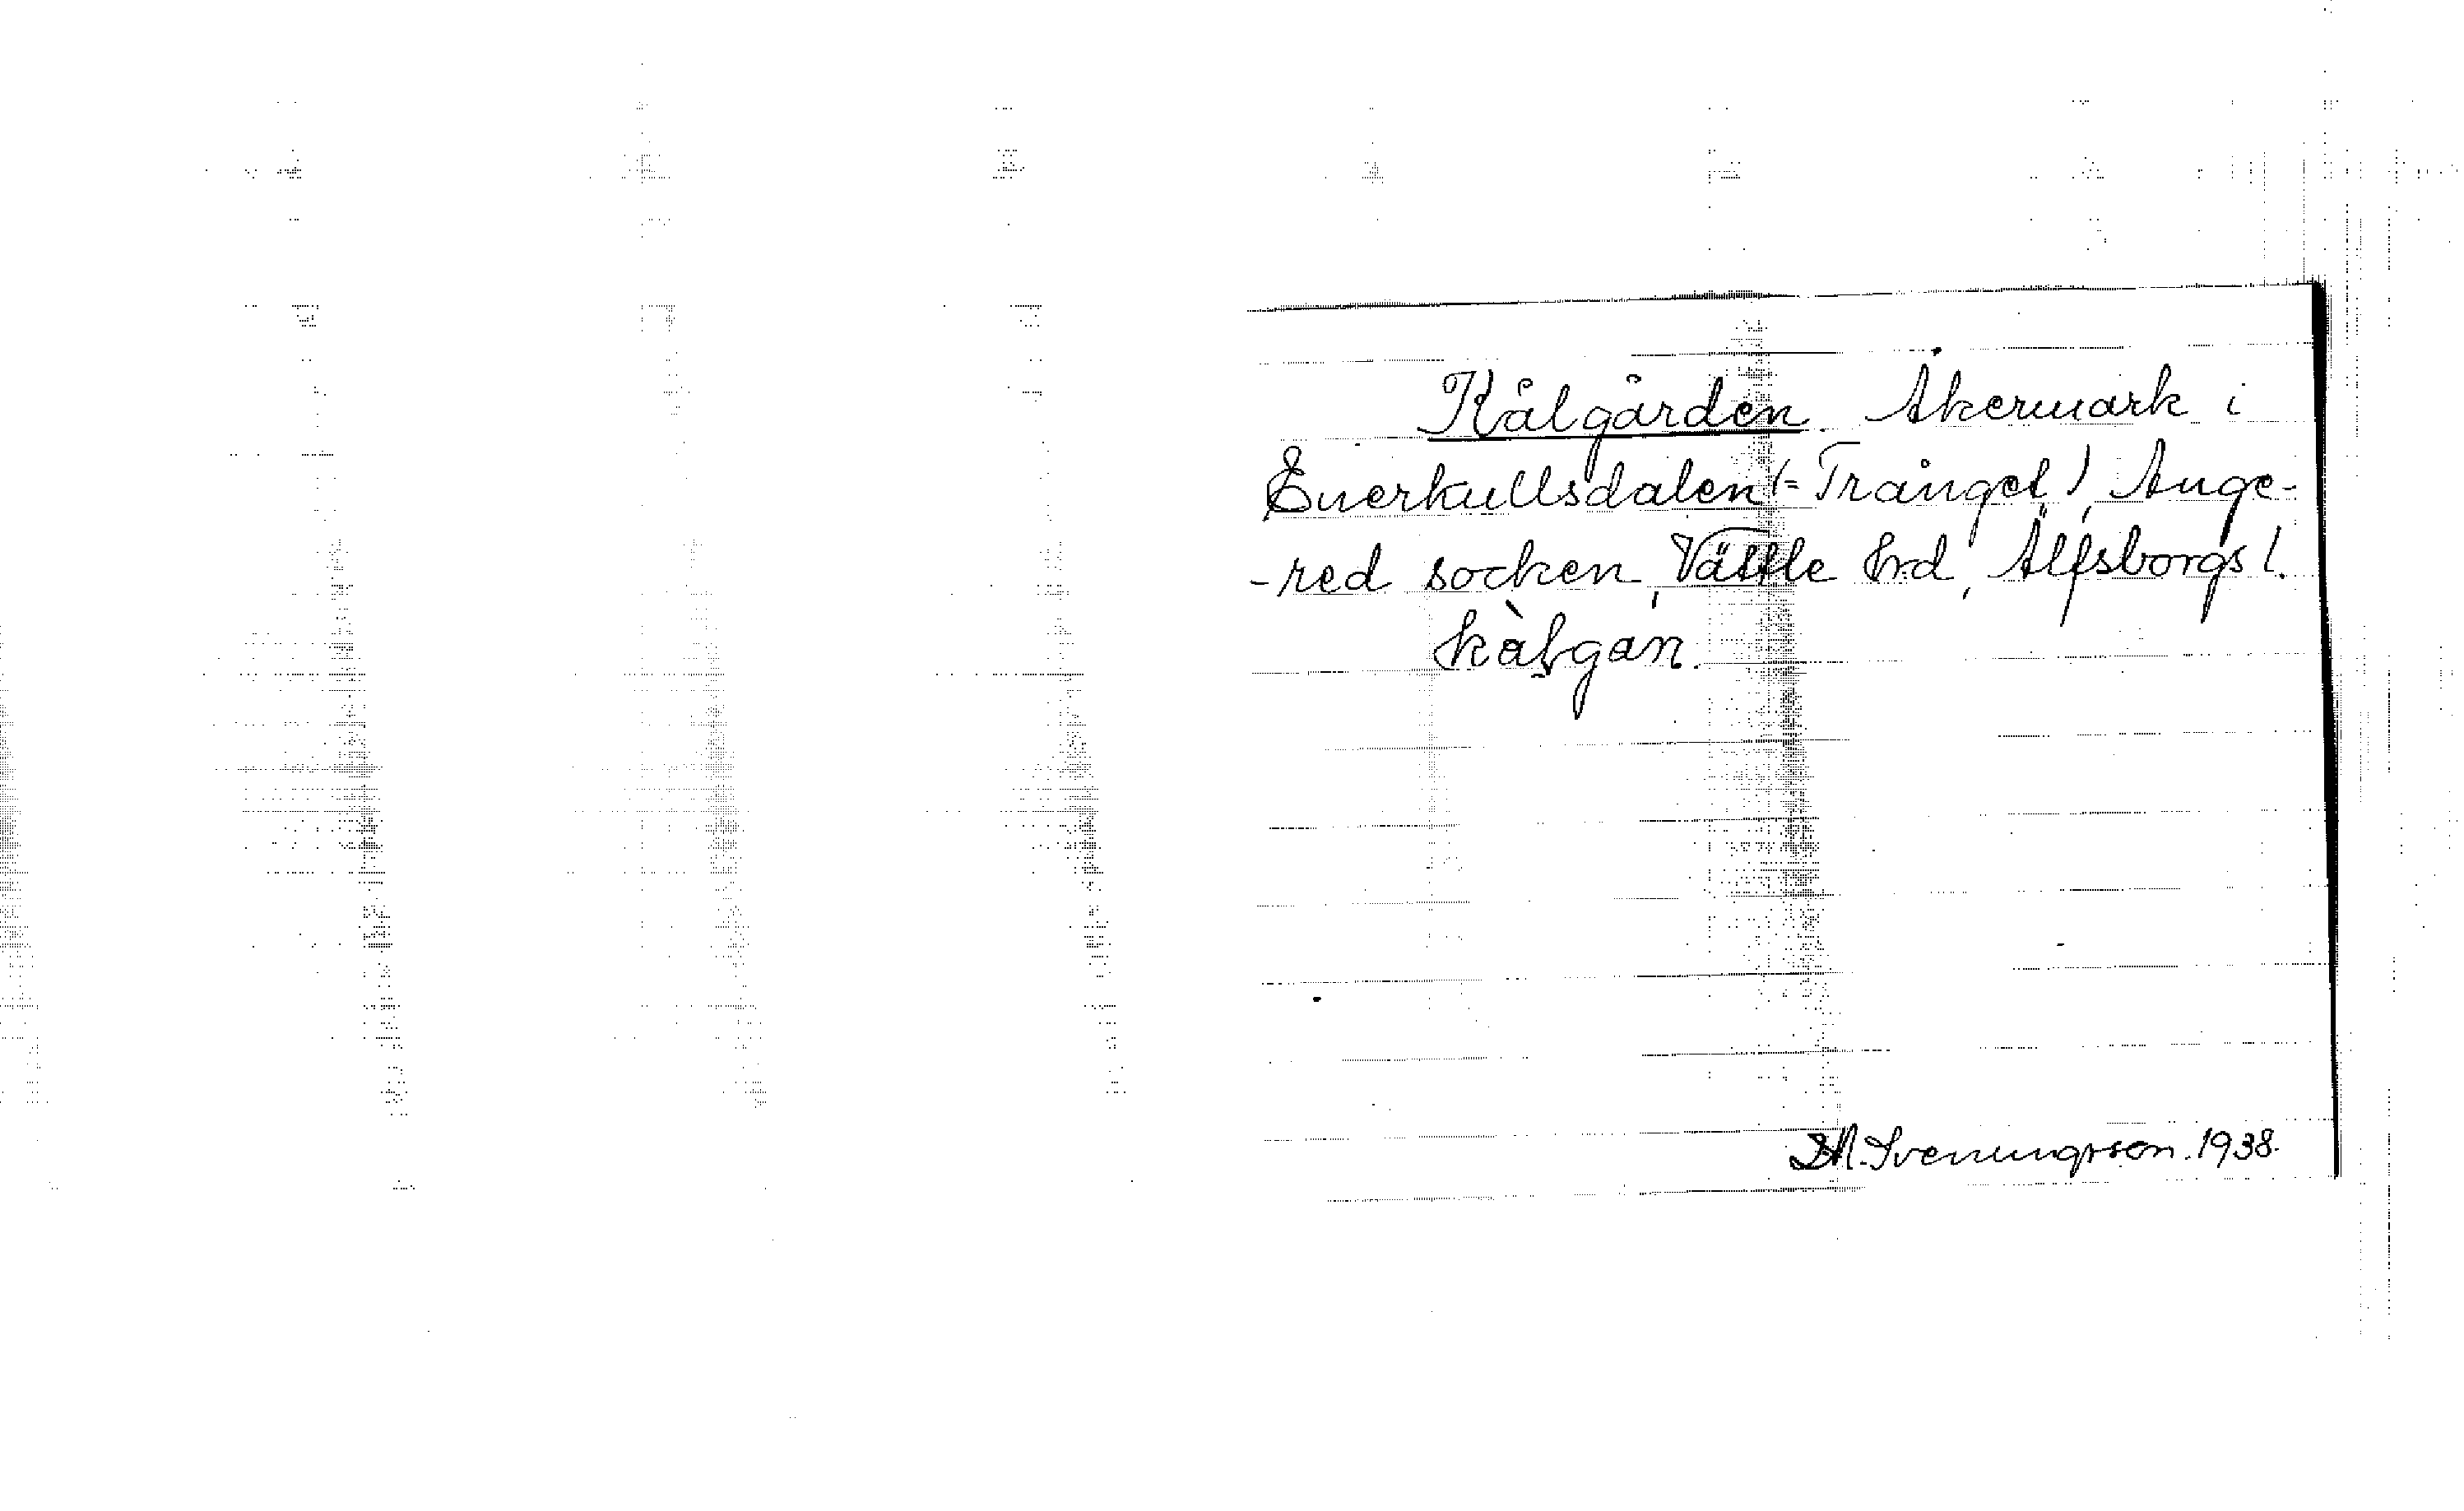 Kålgården. Åkermark i
Enerkullsdalen (= Trånget), Ange-
-red socken, Vättle hrd, Älfsborgs l.
kàlgan.
M. Svenungsson. 1938.